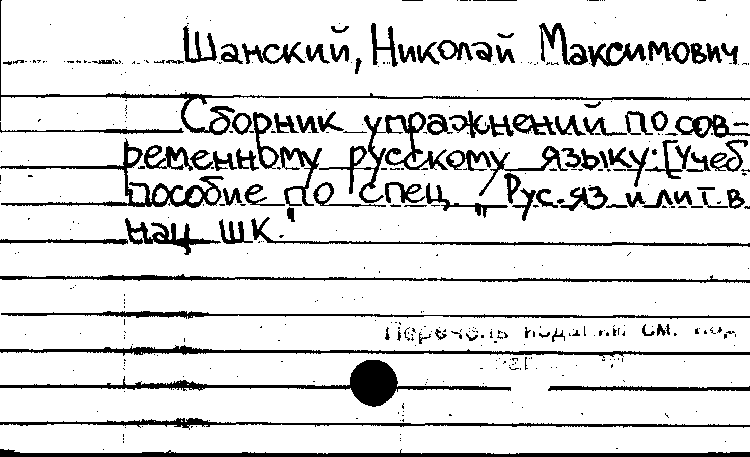 Шанский, Николай Максимович
Сборник упражнений по сов-
ременному русскому языку: [Учеб.
пособие по спец. "Рус. яз. и лит. в
нац. шк."
Перечень изданий см. под